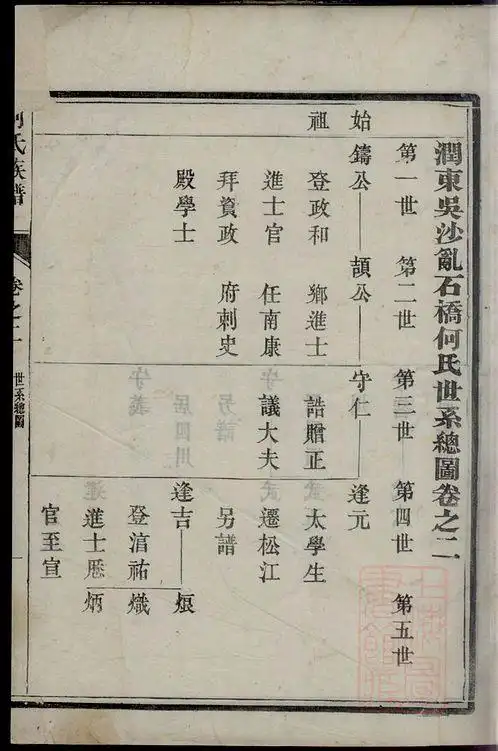 潤東吳沙亂石橋何氏世系總圖卷之二
第一世 第二世 第三世 第四世 第五世
始 鑄公 頡公 守仁 逢元
祖 登政和 鄉進士 誥贈正 太學生
進士官 任南康 議大夫 遷松江
拜資政 府刺史 另譜
殿學士 逢吉 烺
登湻祐 熾
進士歷 炳
官至宣
氏族譜
卷之二 世系總圖